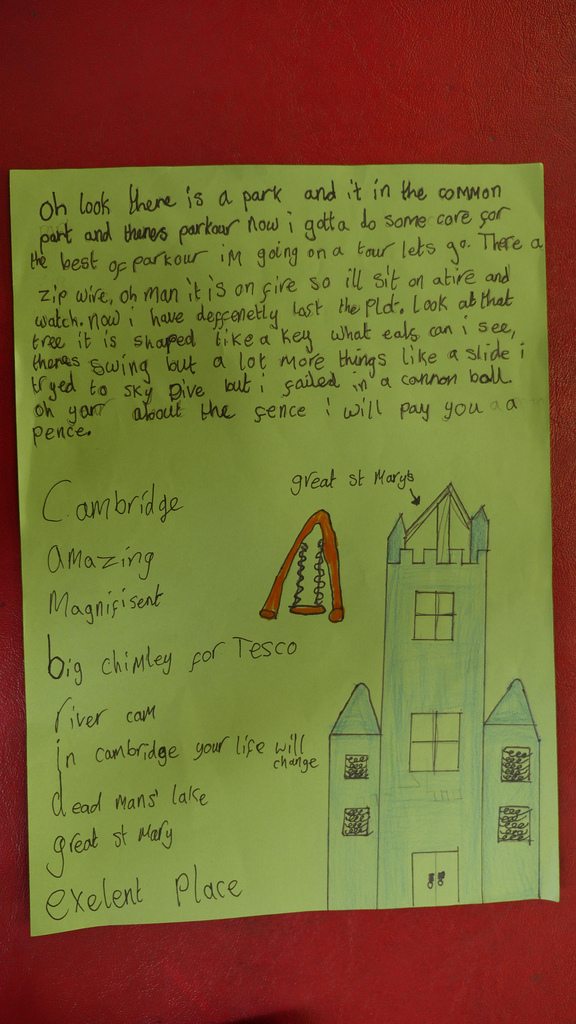 oh look there is a park and it in the common
part and theres parkour now i gotta do some core for
the best of parkour im going on a tour lets go. There a
zip wire, oh man it is on fire so ill sit on a tire and
watch. now i have deffenetly last the plot. Look at that
tree it is shaped like a key what eals can i see,
theres swing but a lot more things like a slide i
tryed to sky Dive but i failed in a cannon ball.
oh yarr about the fence i will pay you a a
pence.
great st Mary's
Cambridge
amazing
Magnifisent
big chimley for Tesco
river cam
in cambridge your life will
change
dead mans' lake
great st Mary
exelent Place